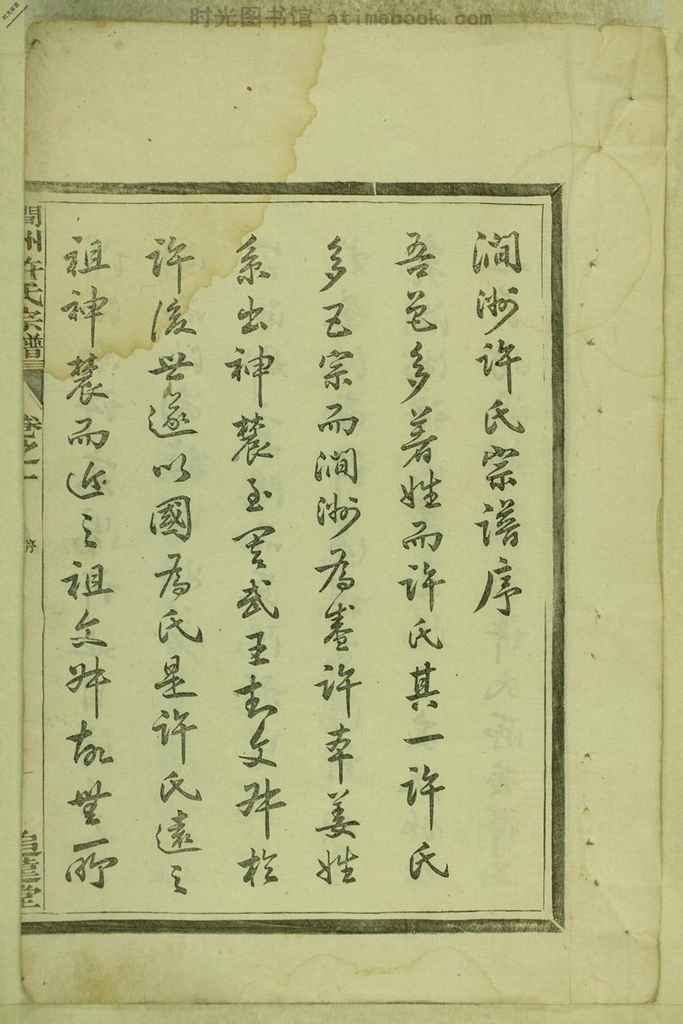 时光图书馆 atimebook.com
澗洲許氏宗譜序
吾邑多著姓而許氏其一許氏
多五宗而澗洲為盛許本姜姓
系出神農至周武王封文叔於
許後世遂以國為氏是許氏遠之
祖神農而近之祖文叔故無所
澗洲許氏宗譜
卷之一
序
追遠堂